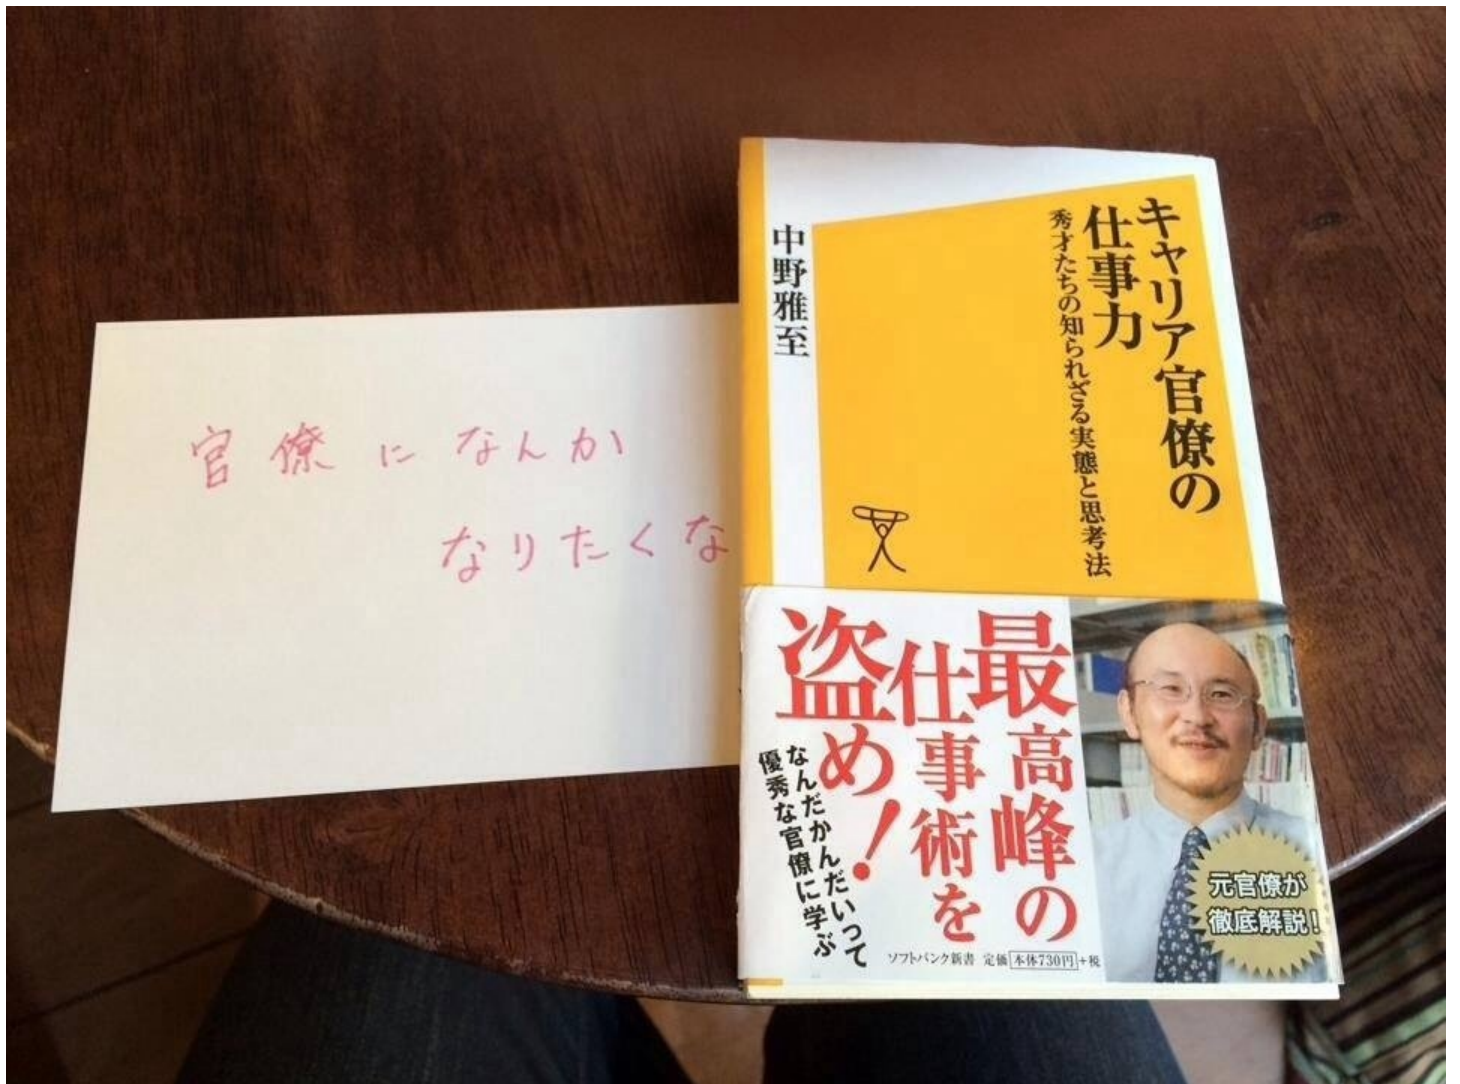 官僚になんか
なりたくな
キャリア官僚の
仕事力
秀才たちの知られざる実態と思考法
中野雅至
最高峰の
仕事術を
盗め!
なんだかんだいって
優秀な官僚に学ぶ
元官僚が
徹底解説!
ソフトバンク新書 定価 本体730円+税